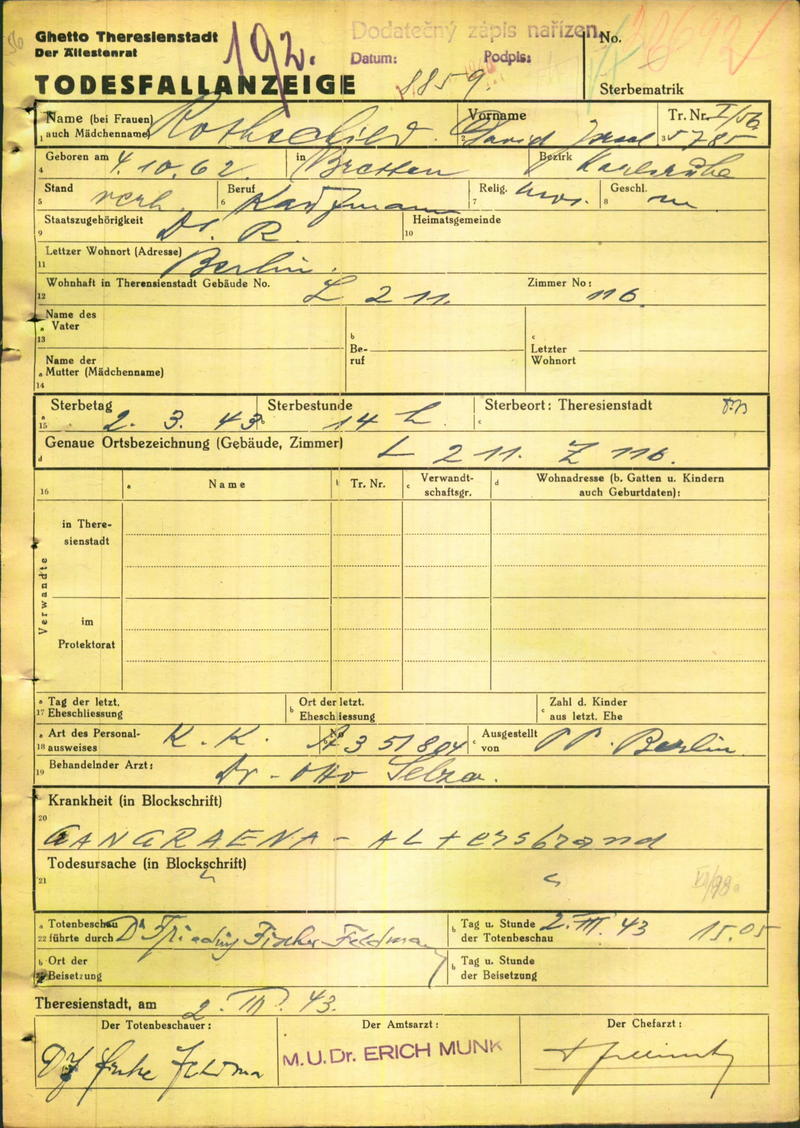 Ghetto Theresienstadt
Der Ältestenrat
TODESFALLANZEIGE
192.
Dodatečný zápis nařízen.
Datum: Podpis:
8859
No.
Sterbematrik
Name (bei Frauen) auch Mädchenname) Rothschild
Vorname David Israel
Tr. Nr. I/56 5785
Geboren am 4.10.62 in Bretten Bezirk Karlsruhe
Stand verh. Beruf Kaufmann Relig. mos. Geschl. m
Staatszugehörigkeit D. R. Heimatsgemeinde
Lettzer Wohnort (Adresse) Berlin.
Wohnhaft in Therensienstadt Gebäude No. L 211. Zimmer No: 116
Name des Vater
Beruf
Letzter Wohnort
Name der Mutter (Mädchenname)
Sterbetag 2. 3. 43 Sterbestunde 14 h. Sterbeort: Theresienstadt
Genaue Ortsbezeichnung (Gebäude, Zimmer) L 211. Z 116.
Name Tr. Nr. Verwandtschaftsgr. Wohnadresse (b. Gatten u. Kindern auch Geburtdaten):
Verwandte
in Theresienstadt
im Protektorat
Tag der letzt. Eheschliessung
Ort der letzt. Eheschliessung
Zahl d. Kinder aus letzt. Ehe
Art des Personalausweises K. K. No A 351804 Ausgestellt von PP. Berlin
Behandelnder Arzt: Dr. Otto Selza.
Krankheit (in Blockschrift)
GANGRAENA - Altersbrand
Todesursache (in Blockschrift)
Totenbeschau führte durch Fischer-Feldmann
Tag u. Stunde der Totenbeschau 2. III. 43 15.05
Ort der Beisetzung
Tag u. Stunde der Beisetzung
Theresienstadt, am 2. III. 43.
Der Totenbeschauer: Der Amtsarzt: Der Chefarzt:
M.U.Dr. ERICH MUNK